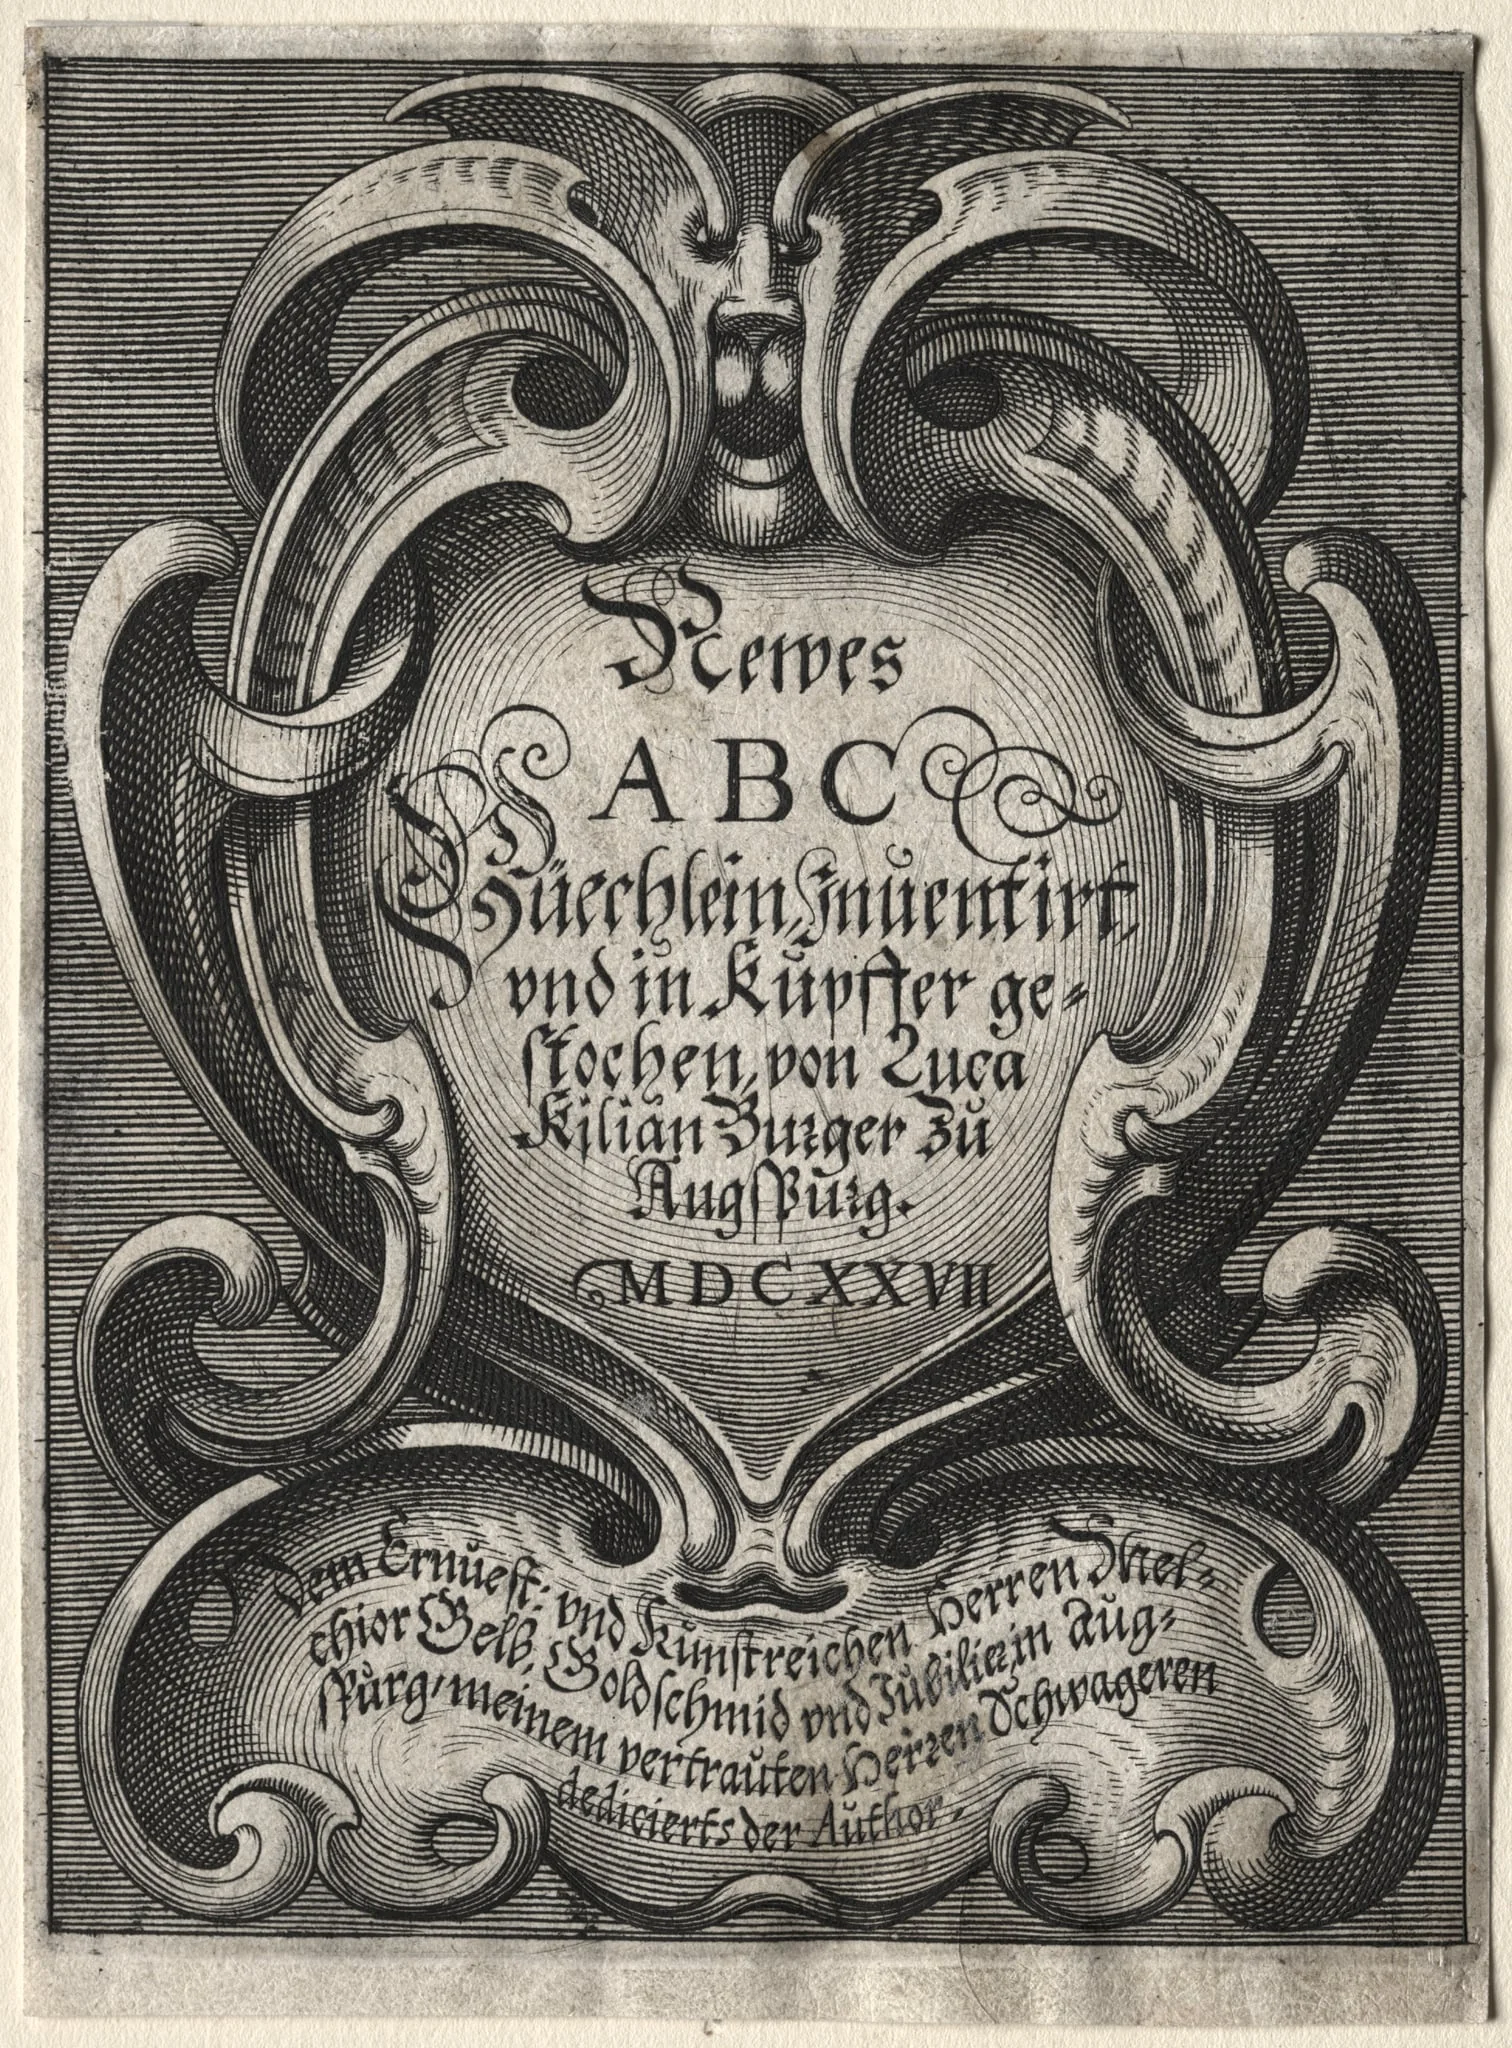 Newes
ABC
Büechlein, Inuentirt,
vnd in Kupffer ge-
stochen, von Luca
Kilian Burger zu
Augspurg.
MDCXXVII
Dem Ernuest: vnd Kunstreichen Herren Mel-
chior Gelb, Goldschmid vnd Iubilier, in Aug-
spurg, meinem vertrauten Herren Schwageren
dedicierts der Author.